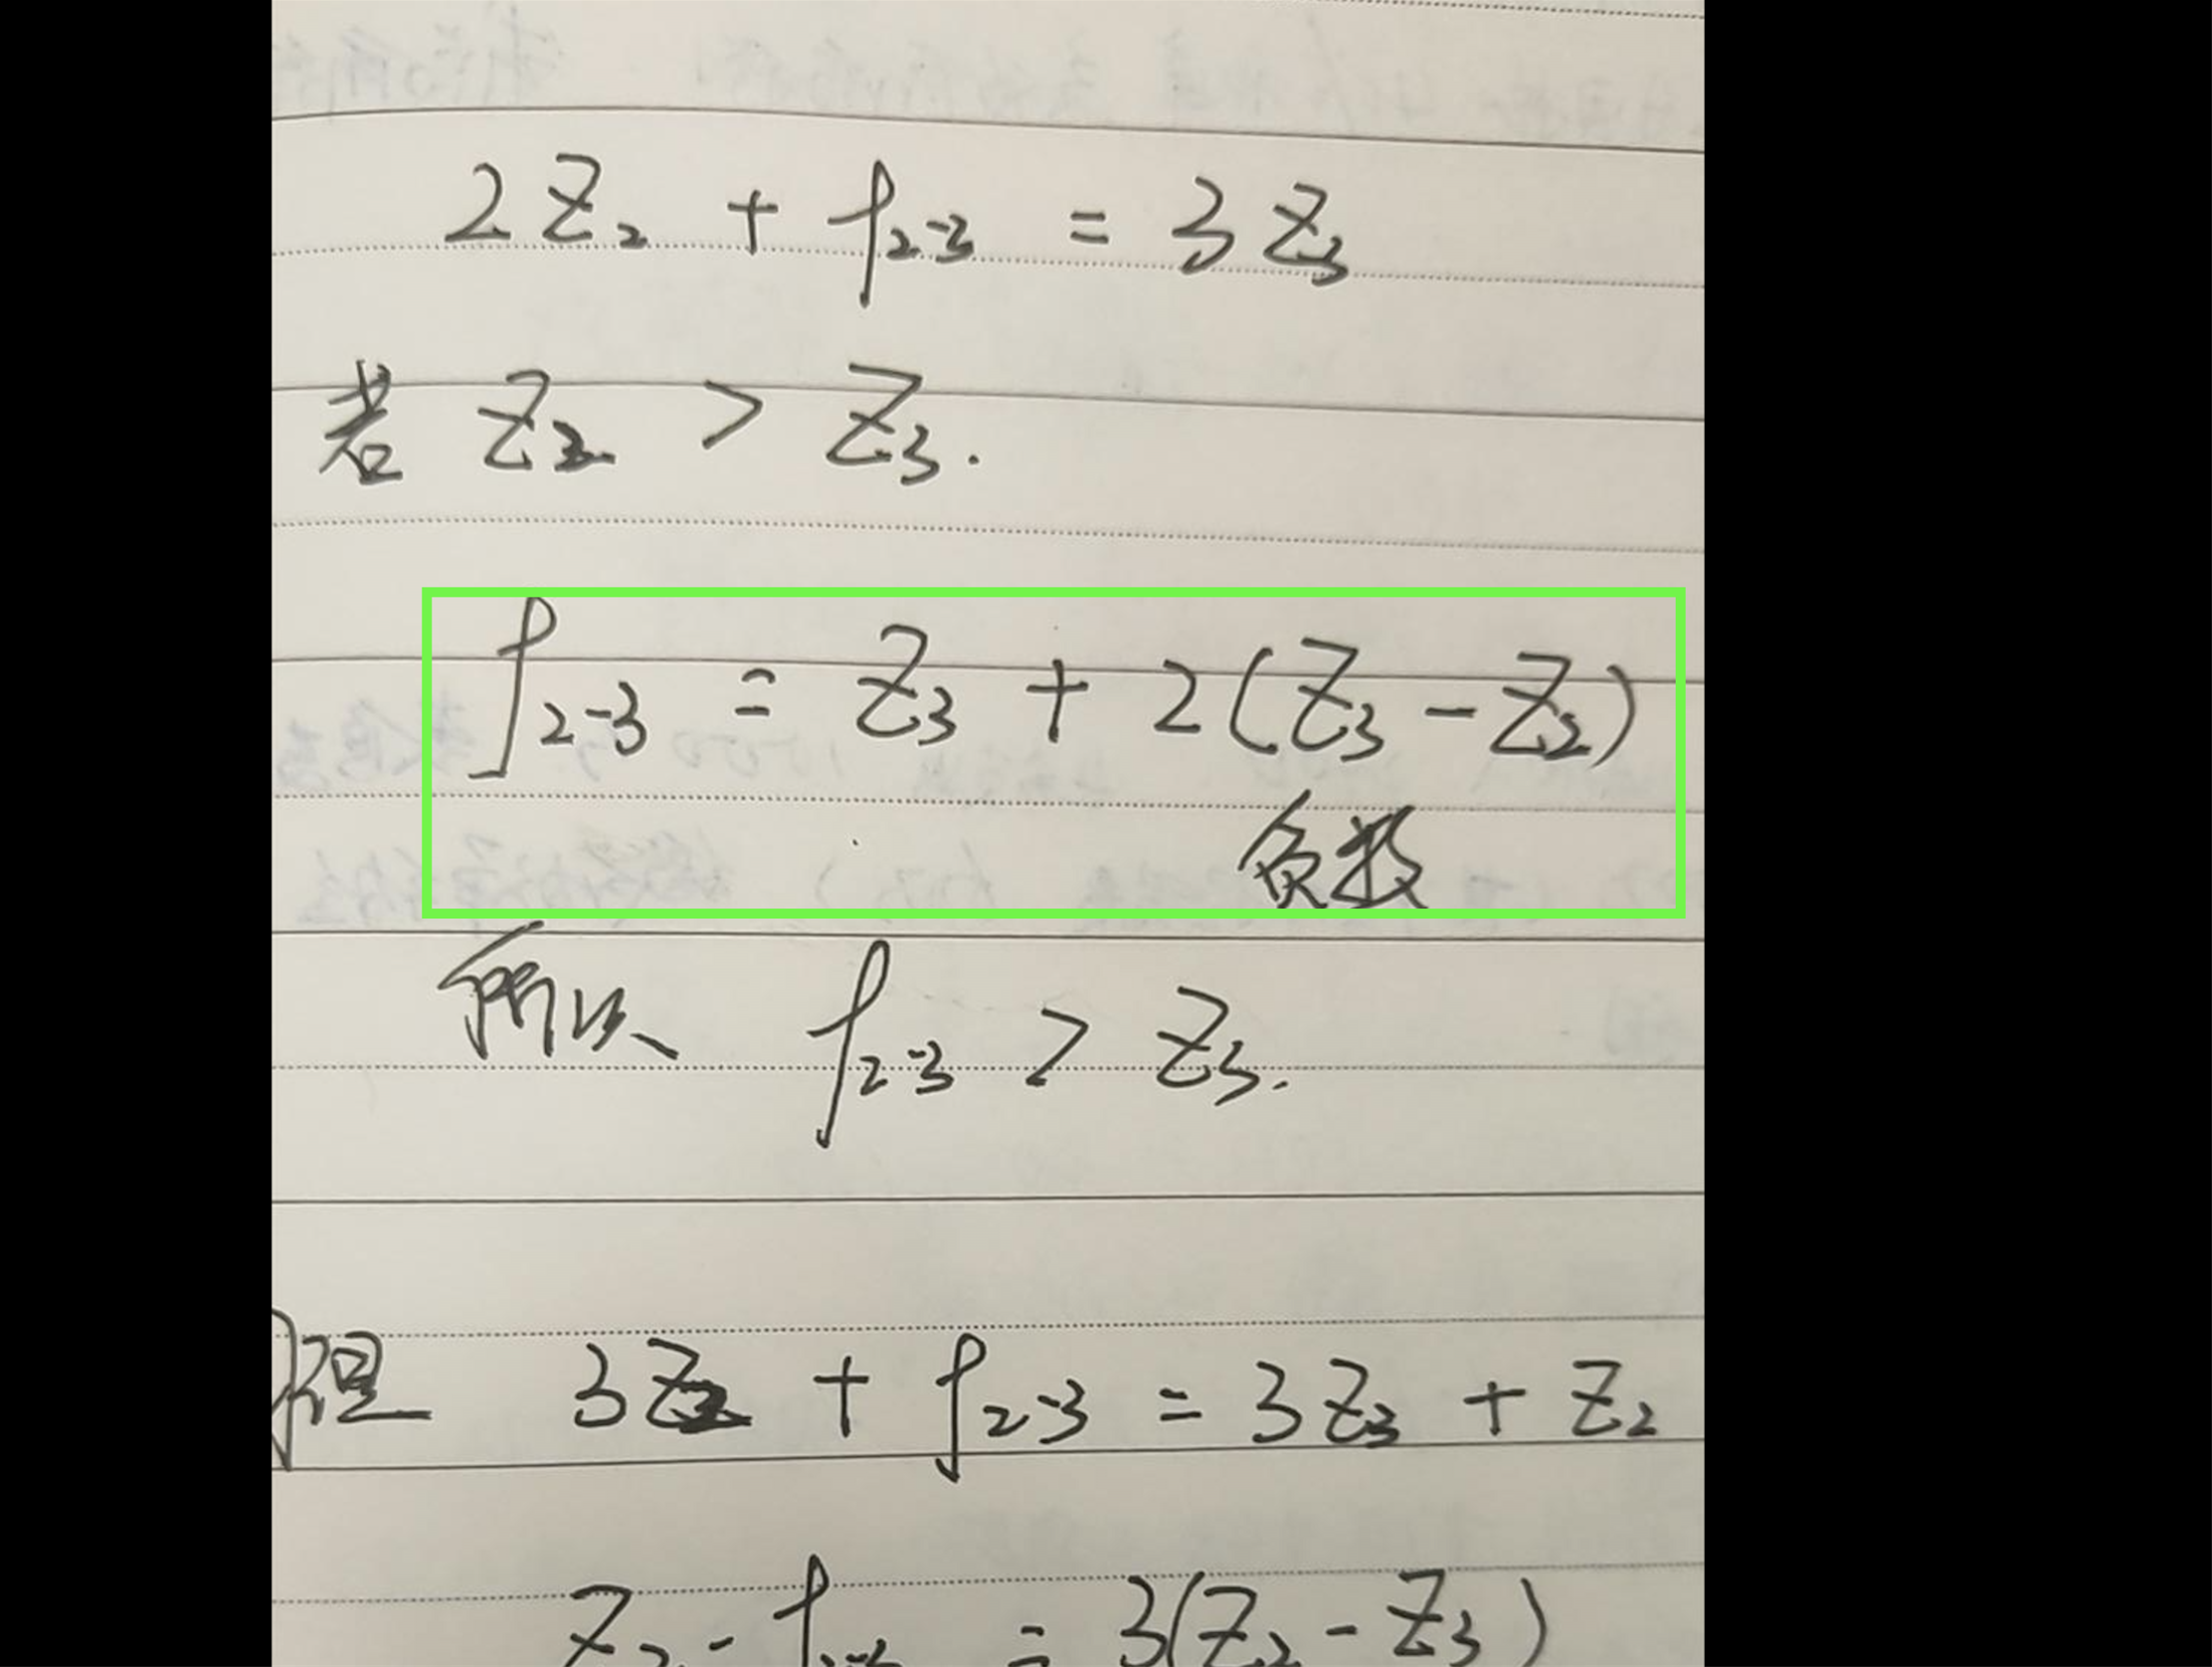 2Z₂ + f₂₋₃ = 3Z₃
若 Z₂ > Z₃.
f₂₋₃ = Z₃ + 2(Z₃ - Z₂)
负数
所以 f₂₋₃ > Z₃.
理 3Z₂ + f₂₋₃ = 3Z₃ + Z₂
Z₂ - f₂₋₃ = 3(Z₂ - Z₃)